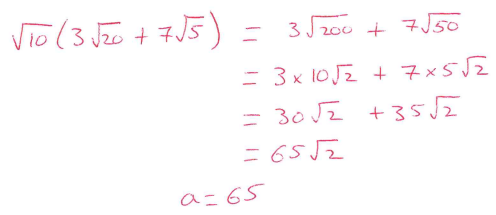 √10 (3√20 + 7√5) = 3√200 + 7√50
= 3 × 10√2 + 7 × 5√2
= 30√2 + 35√2
= 65√2
a = 65